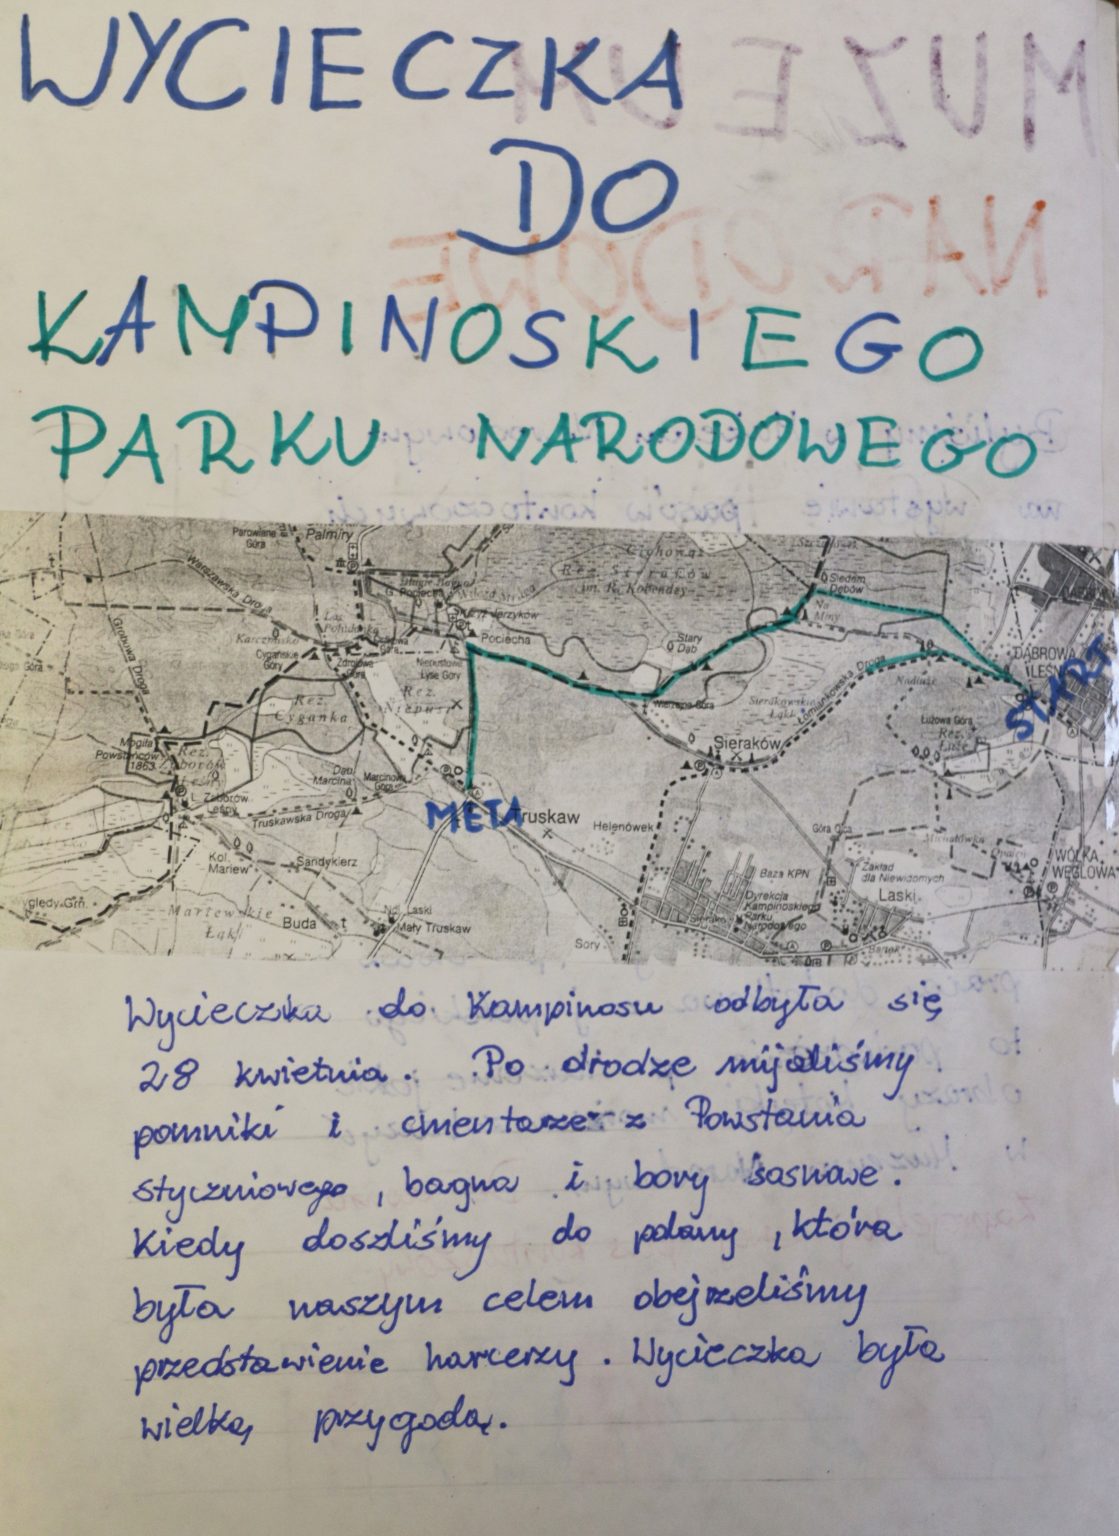 WYCIECZKA
DO
KAMPINOSKIEGO
PARKU NARODOWEGO
Parowana Góra
Palmiry
Cichowąż
Rez. Sieraków
im. R. Kobendzy
Siedem Dębów
Na Miny
Warszawska Droga
Grobowa Droga
Karczmisko
Cygańskie Góry
Zdrojowa Góra
Pociecha
Nierustowe
Łyse Góry
Stary Dąb
DĄBROWA LEŚNA
START
Nadłuże
Droga Łomiankowska
Rez. Cyganka
Sierakowskie Łąki
Łużowa Góra
Mogiła Powstańców 1863
Zaborów Leśny
Dąb Marcina
Marcinowa Góra
Sieraków
META
Truskaw
Truskawska Droga
Helenówek
Góra Ojca
WÓLKA WĘGLOWA
Kol. Mariew
Sandykierz
Baza KPN
Zakład dla Niewidomych
Laski
Dyrekcja Kampinoskiego Parku Narodowego
Mariewskie Łąki
Buda
Mały Truskaw
Sory
Wycieczka do Kampinosu odbyła się
28 kwietnia. Po drodze mijaliśmy
pomniki i cmentarze z Powstania
styczniowego, bagna i bory sosnowe.
Kiedy doszliśmy do polany, która
była naszym celem obejrzeliśmy
przedstawienie harcerzy. Wycieczka była
wielką przygodą.